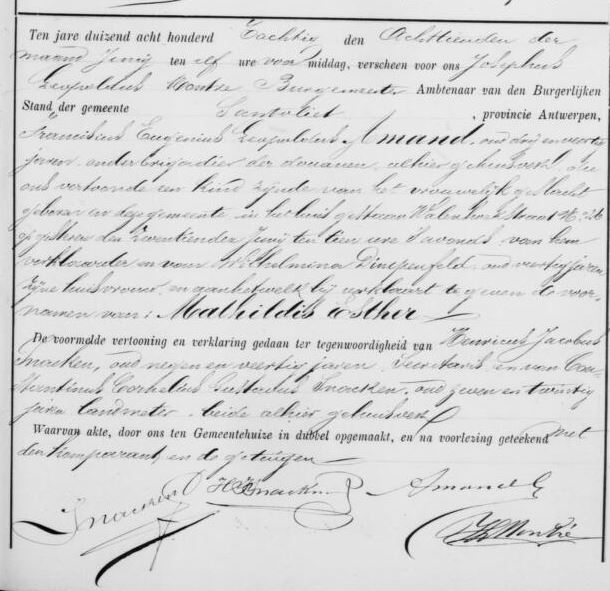 Ten jare duizend acht honderd Tachtig den Achttienden der
maand Junij ten elf ure voor middag, verscheen voor ons Josephus
Leopoldus Montze Burgemeester Ambtenaar van den Burgerlijken
Stand der gemeente Santvliet , provincie Antwerpen,
Franciscus Eugenius Leopoldus Amand, oud drij en veertig
jaren onderbrigadier der douanen, alhier gehuisvest, die
ons vertoonde een kind zijnde van het vrouwelijk geslacht
geboren in deze gemeente in het huis gestaan straat N° 26
op gisteren den zeventienden Junij ten tien ure 's avonds van hem
verklaarder en van Wilhelmina oud veertig jaren
zijne huisvrouw, en aan hetwelk hij verklaart te geven de voor-
namen van: Mathildis Esther
De voormelde vertooning en verklaring gedaan ter tegenwoordigheid van Henricus Jacobus
Snacken, oud negen en veertig jaren Secretaris en van Con-
stantinus Cornelius Gustadus Snacken, oud zeven en twintig
jaren landmeter beide alhier gehuisvest
Waarvan akte, door ons ten Gemeentehuize in dubbel opgemaakt, en na voorlezing geteekend met
den komparant en de getuigen
Snacken H J Snacken Amand